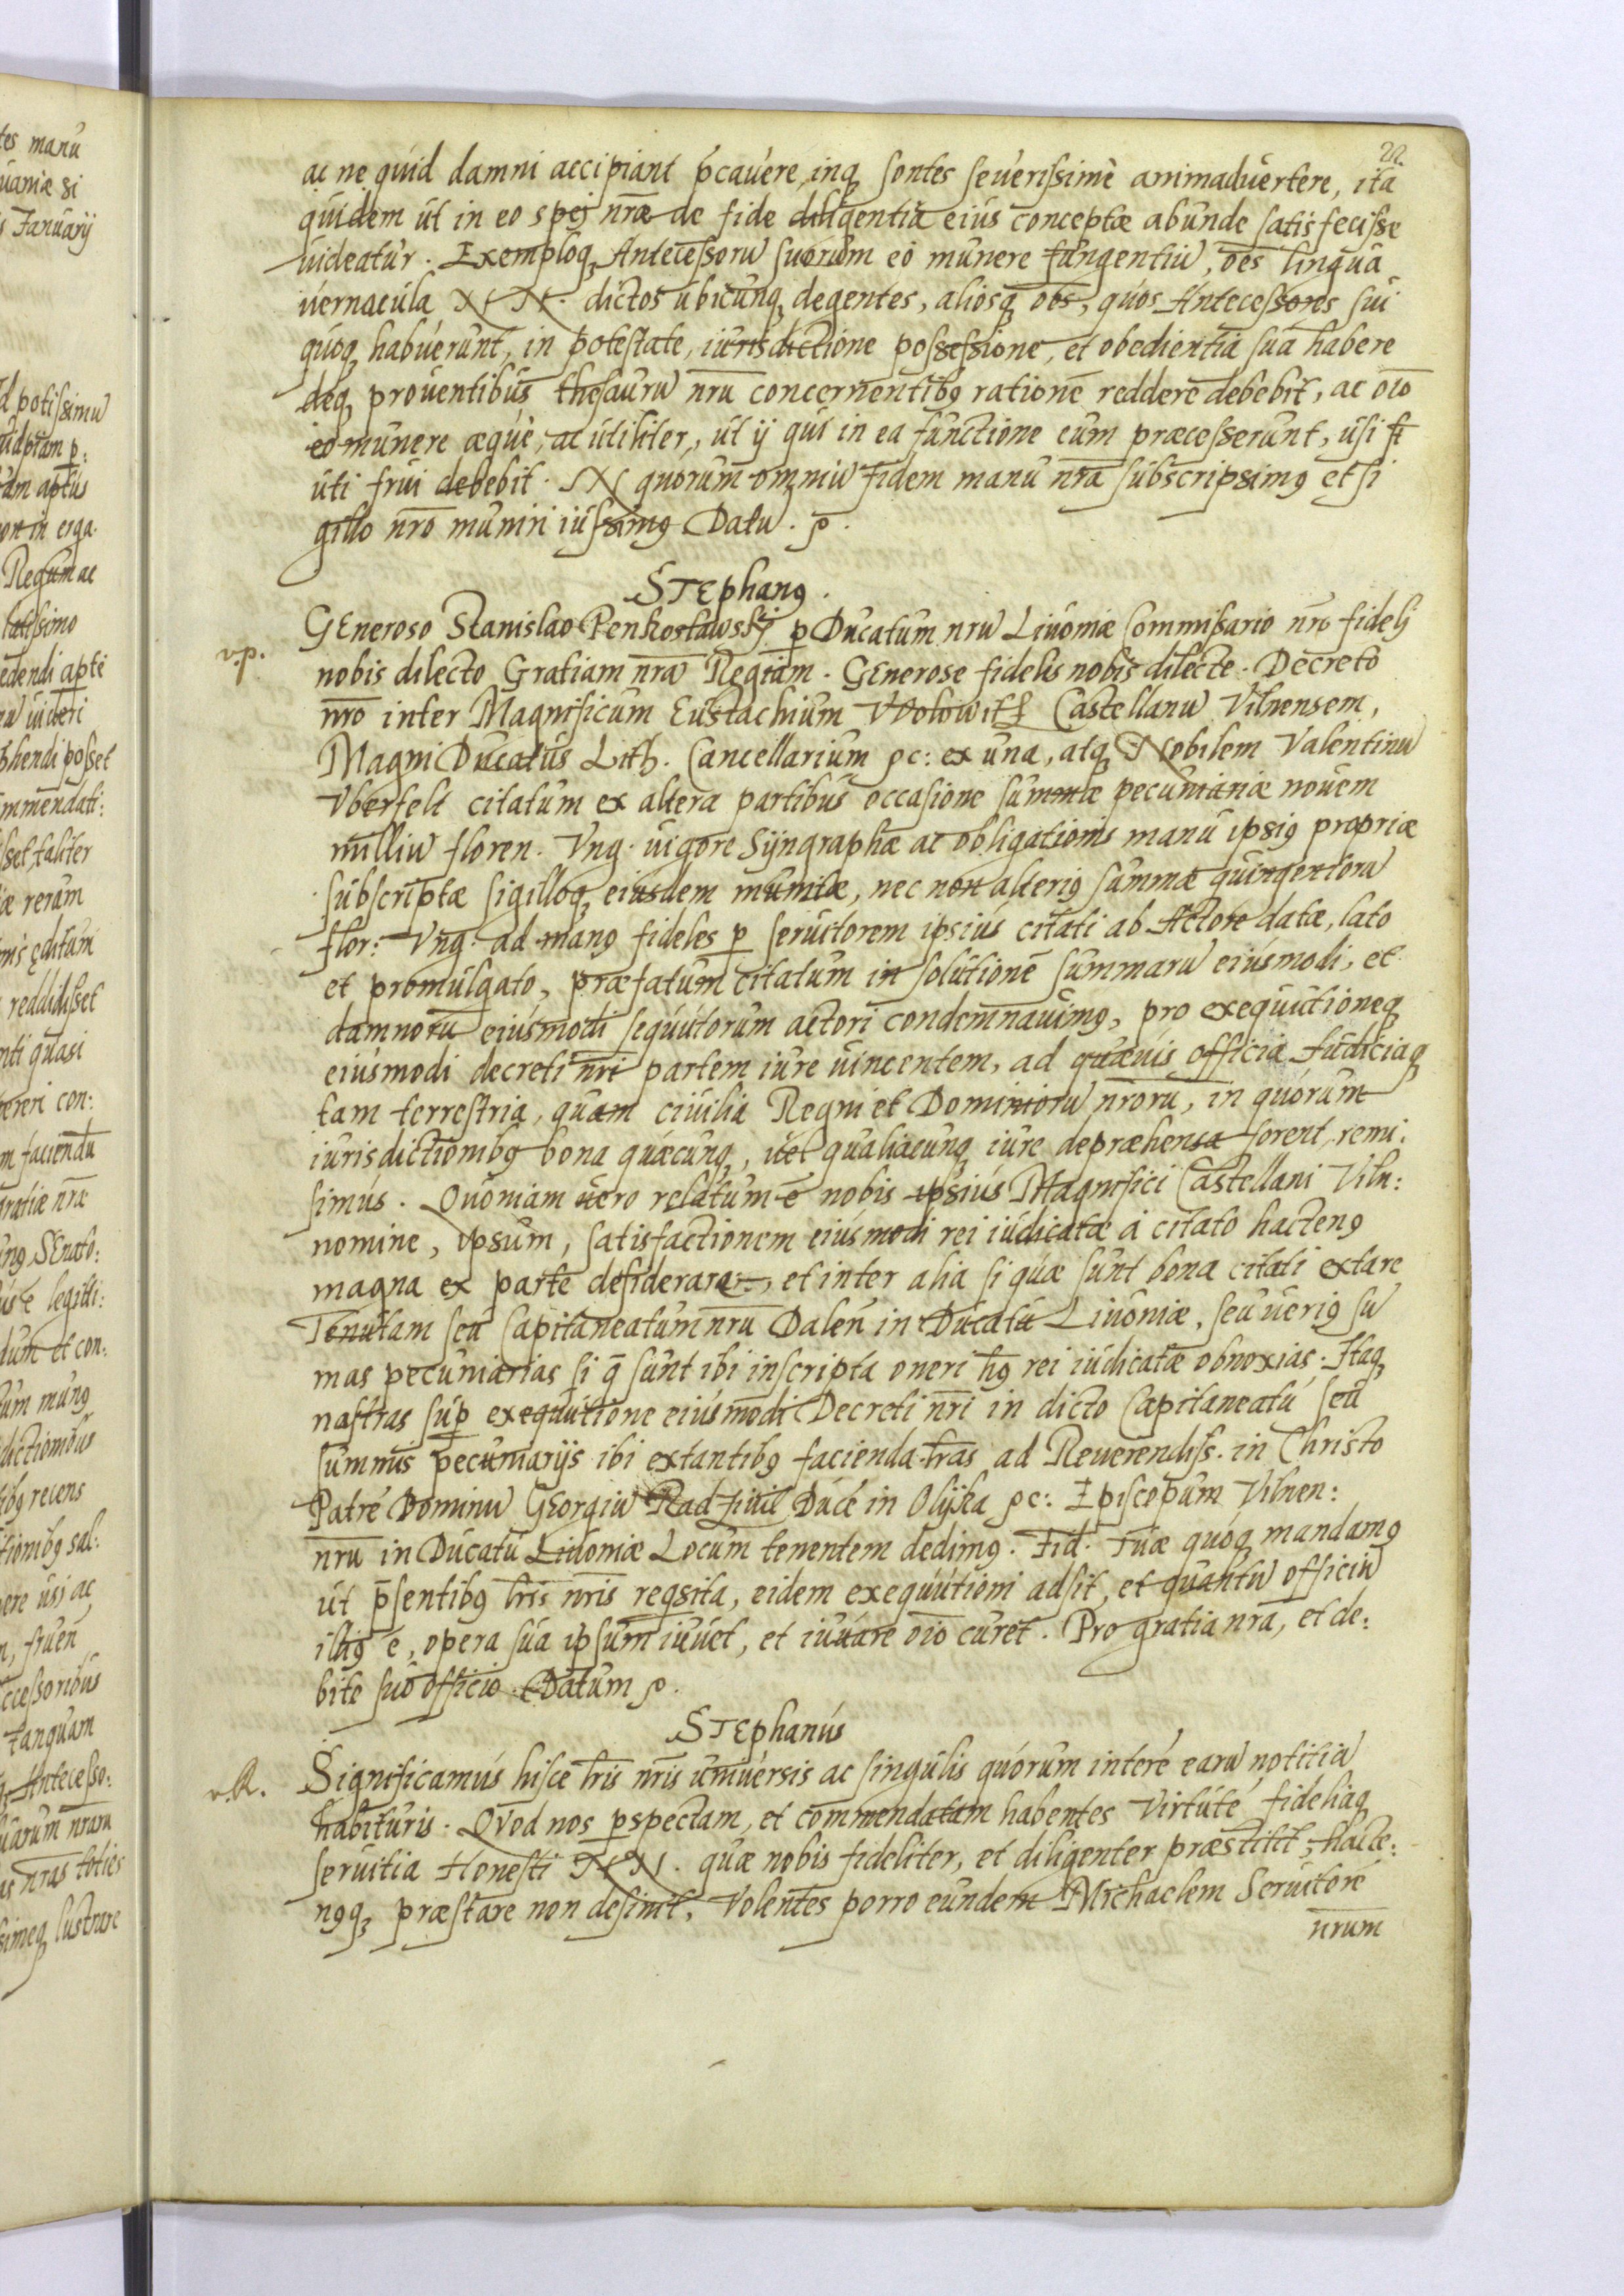 22.
ac ne quid damni accipiant p̄cauere, inq; sontes seuerissime animaduertere, ita
quidem ut in eo spei nr̄æ de fide diligentia eius conceptæ abunde satisfecisse
uideatur. Exemploq; Antecessorū suorum eo munere fungentiū, oēs lingua
uernacula N N. dictos ubicunq; degentes, aliosq; oēs, quos Antecessores sui
quoq; habuerunt, in potestate, iurisdictione possessione, et obedientia sua habere
deq; prouentibus thesaurū nr̄ū concernentibꝰ rationē reddere debebit, ac oīo
eo munere æque, ac utiliter, ut ij qui in ea functione eum præcesserunt, usi
uti frui debebit. IN quorum omniū fidem manu nr̄a subscripsimꝰ et si
gillo nr̄o muniri iussimꝰ Datū. ꝛc.
STEphanꝰ.
v.p. GEneroso Stanislao Penkoslawskj p Ducatum nr̄ū Liuoniæ Commissario nr̄o fidelj
nobis dilecto Gratiam nr̄ā Regiam. GEnerose fidelis nobis dilecte. Decreto
nr̄o inter Magnificum Eustachium Wolowitz Castellanū Vilnensem,
Magni Ducatus Lith. Cancellarium ꝛc: ex una, atq; Nobilem Valentinū
Vberfelt citatum ex altera partibus occasione summæ pecuniariæ nouem
milliū floren. Vng. uigore Syngraphæ ac obligationis manu ipsiꝰ propriæ
subscriptæ sigilloq; eiusdem munitæ, nec non alteriꝰ summæ quingentorū
flor: Vng. ad manꝰ fideles p seruitorem ipsius citati ab Actore datæ, lato
et promulgato, præfatum citatum in solutionē summarū eiusmodi, et
damnorū eiusmodi sequutorum actori condemnauimꝰ, pro exequutioneq;
eiusmodi decreti nr̄i partem iure uincentem, ad quæuis officia Iudiciaq;
tam terrestria, quam ciuilia Regni et Dominiorū nr̄orū, in quorum
iurisdictionibꝰ bona quæcunq;, uel qualiacunq; iure depræhensa forent, remi:
simus. Quoniam uero relatum ē nobis ipsius Magnifici Castellani Viln:
nomine, ipsum, satisfactionem eiusmodi rei iudicatæ à citato hactenꝰ
magna ex parte desiderare, et inter alia si quæ sunt bona citati extare
Tenutam seu Capitaneatum nr̄ū Dalen in Ducatu Liuoniæ, seu ueriꝰ sū
mas pecuniarias si q̄ sunt ibi inscripta oneri hꝰ rei iudicatæ obnoxias. Itaq;
nastras sup exequutione eiusmodi Decreti nr̄i in dicto Capitaneatu seu
summis pecuniarijs ibi extantibꝰ facienda lr̄as ad Reuerendiss. in Christo
Patrē Dominū GEorgiū Radziuil Ducē in Olyka ꝛc: Episcopum Vilnen:
nr̄ū in Ducatu Liuoniæ Locum tenentem dedimꝰ. Fid. Tuæ quoq; mandamꝰ
ut p̄sentibꝰ lr̄is nr̄is reqsita, eidem exequutioni adsit, et quantū officiū
illiꝰ ē, opera sua ipsum iuuet, et iuuare oīo curet. Pro gratia nr̄a, et de:
bite suo officio. Datum ꝛc.
STEphanus
v.R. Significamus hisce lr̄is nr̄is uniuersis ac singulis quorum interē earū notitiā
habituris. QVod nos pspectam, et commendatam habentes Virtutē, fideliaq;
seruitia Honesti N N. quæ nobis fideliter, et diligenter præstitit, hacte:
nꝰq; præstare non desinit. Volentes porro eundem Michaelem Seruitorē
nr̄um